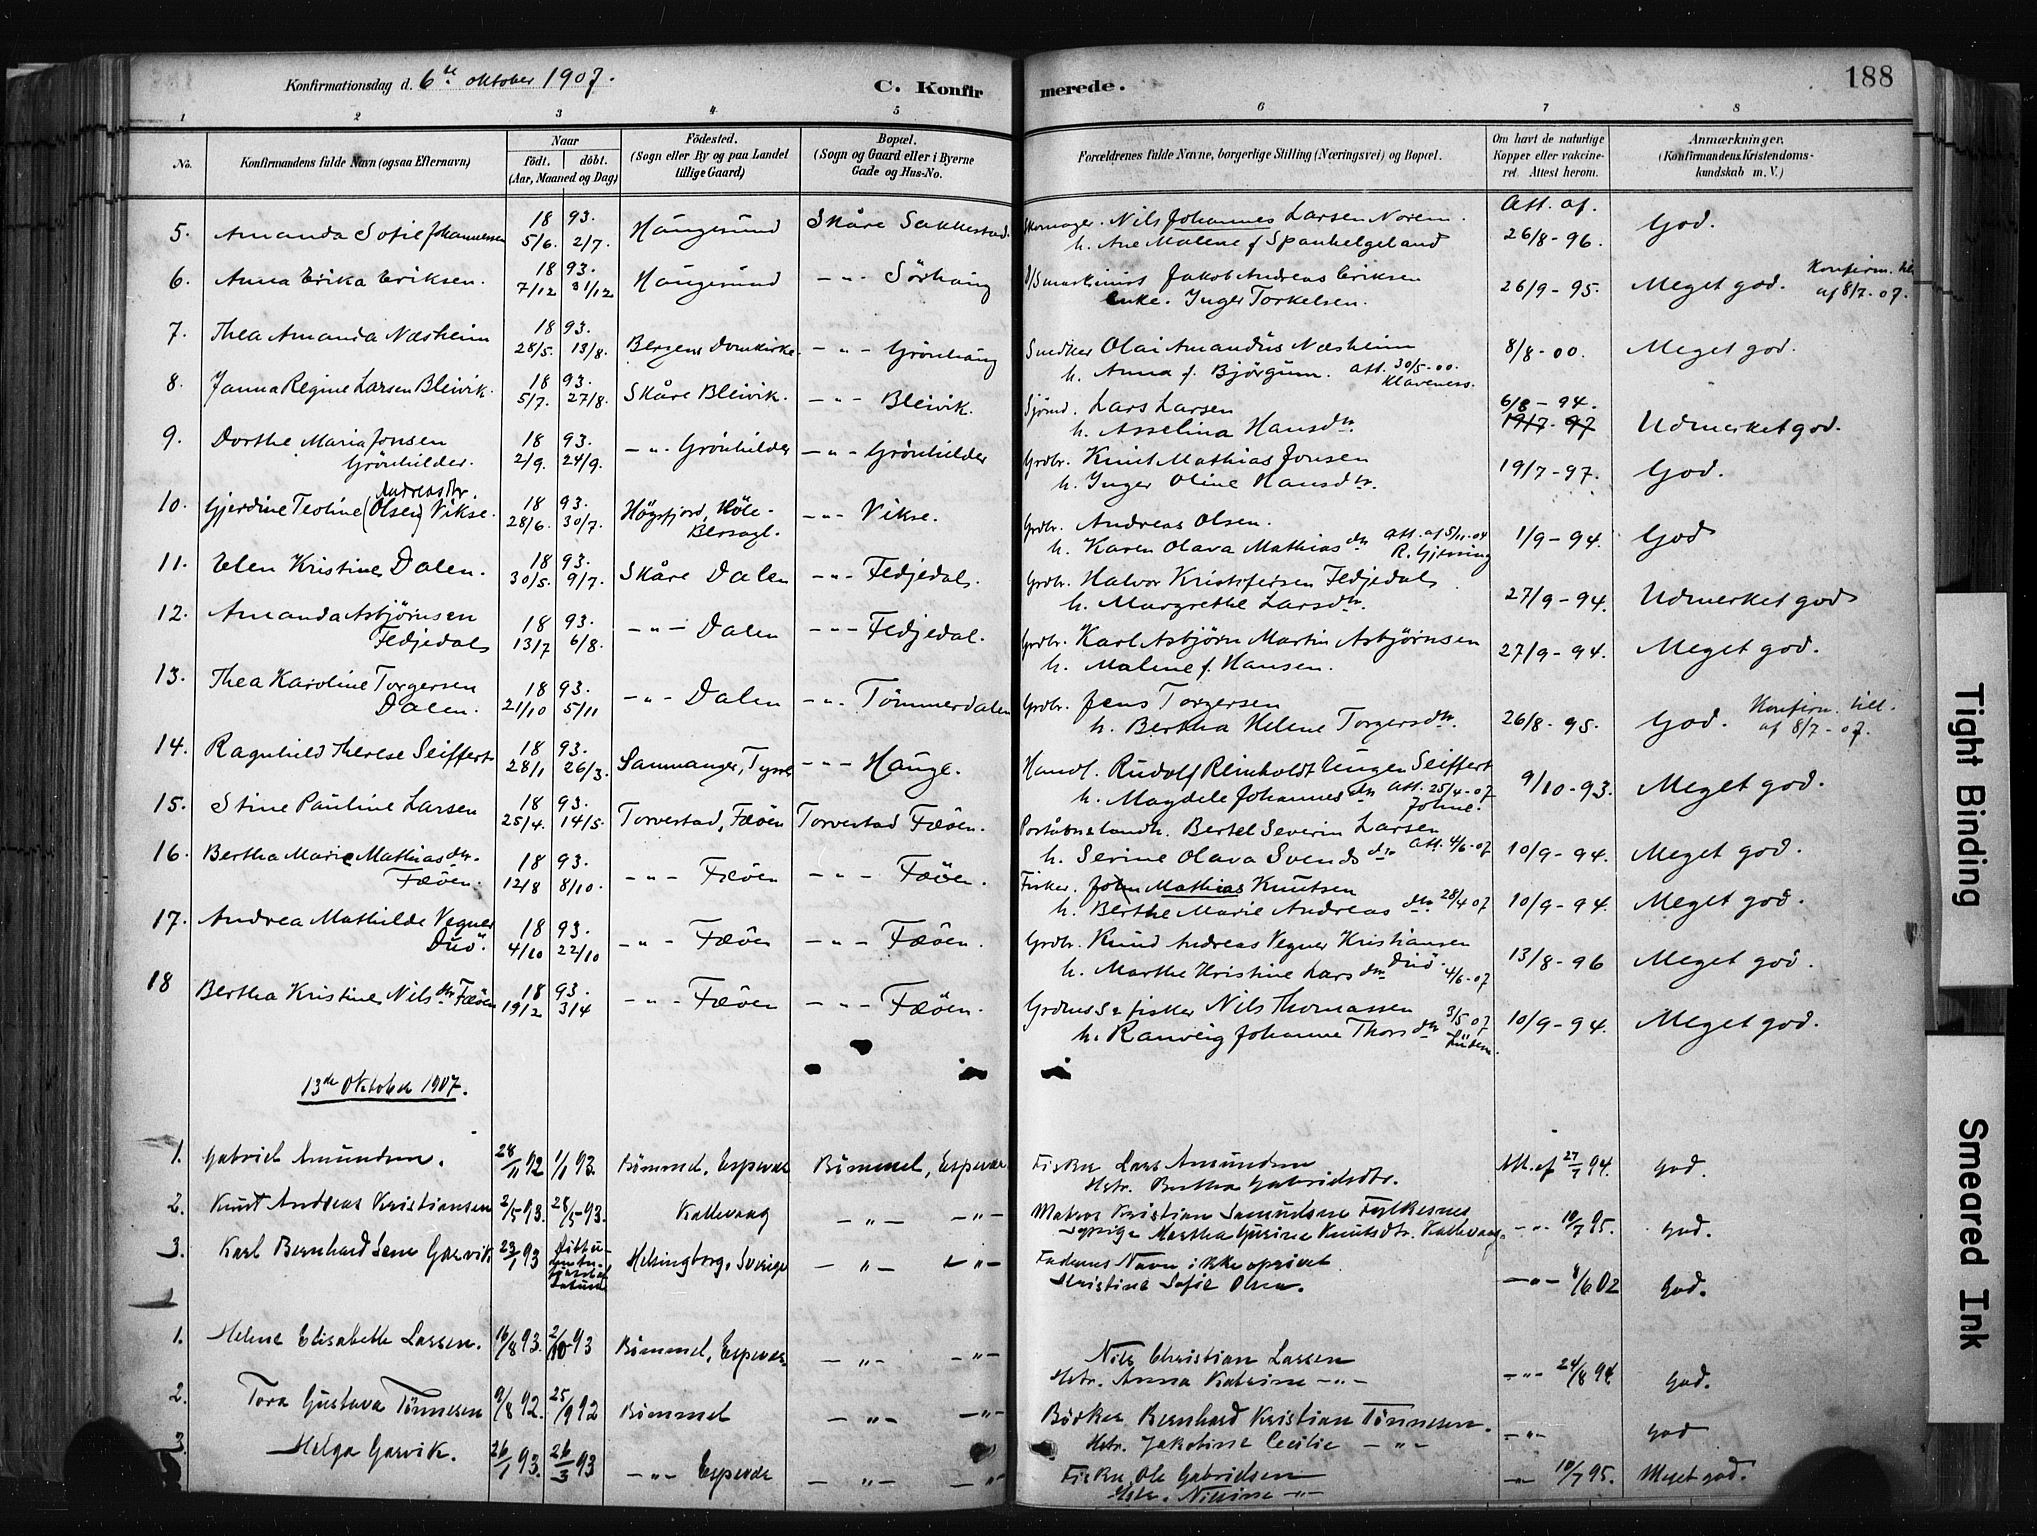 Konfirmationsdag d. 6te oktober 1907.
C. Konfirmerede.
188
1 2 3 4 5 6 7 8
No.
Konfirmandens fulde Navn (ogsaa Efternavn)
Naar
födt. döbt.
(Aar, Maaned og Dag)
Födested.
(Sogn eller By og paa Landet
tillige Gaard)
Bopæl.
(Sogn og Gaard eller i Byerne
Gade og Hus-No.
Forældrenes fulde Navne, borgerlige Stilling (Næringsvei) og Bopæl.
Om havt de naturlige
Kopper eller vakcine-
ret. Attest herom.
Anmærkninger.
(Konfirmandens Kristendoms-
kundskab m. V.)
5. Amanda Sofie Johannessen 18 93. 5/6. 2/7. Haugesund Skåre Sakkestad. Skomager. Nils Johannes Larsen Norem. Att. af. 26/8-96. God.
h. Ane Malene f Spanhelgeland
6. Anna Erika Eriksen. 18 93. 7/12 31/12 Haugesund -"- Sörhaug Jakob Andreas Eriksen 26/9-95. Meget god. Konfirm. till. af 8/7-07.
enke. Inger Torkelsen.
7. Thea Amanda Næsheim 18 93. 28/5. 13/8. Bergens Domkirke. -"- Grönhaug Snedker Olai Amandus Næsheim 8/8-00. Meget god.
h. Anna f. Bjørgum. att. 30/5-00. Klaveness.
8. Janna Regine Larsen Bleivik. 18 93. 5/7. 27/8. Skåre Bleivik. -"- Bleivik. Sjömd. Lars Larsen 6/8-94. 19/7-97 Udmerket god.
h. Asselina Hansdtr.
9. Dorthe Maria Jonsen 18 93. 2/9. 24/9. -"- Grönhilder -"- Grönhilder Grdbr. Knut Mathias Jonsen 19/7-97. God.
Grönhilder. h. Inger Oline Hansdtr.
10. Gjerdine Teoline (Olsen) Andreasdtr. Vikse. 18 93. 28/6. 30/7. Högsfjord, Höle- Bersagl. -"- Vikse. Grdbr. Andreas Olsen. 1/9-94. God
h. Karen Olava Mathiasdtr. att. af 5/11-04 R. Gjessing
11. Elen Kristine Dalen. 18 93. 30/5. 9/7. Skåre Dalen -"- Fedjedal. Grdbr. Halvor Kristofersen Fedjedal 27/9-94. Udmerket god
h. Margrethe Larsdtr.
12. Amanda Asbjørnsen 18 93. 13/7 6/8. -"- Dalen -"- Fedjedal. Grdbr. Karl Asbjørn Martin Asbjørnsen 27/9-94. Meget god.
Fedjedal h. Malene f. Hansen.
13. Thea Karoline Torgersen 18 93. 21/10 5/11 -"- Dalen -"- Tömmerdalen Grdbr. Jens Torgersen 26/8-95. God. Konfirm. till. af 8/7-07.
Dalen. h. Bertha Helene Torgersdtr.
14. Ragnhild Therese Seiffert 18 93. 28/1 26/3. Sammanger, -"- Hauge. Handl. Rudolf Reinholdt Eugen Seiffert 9/10-93. Meget god.
h. Magdele Johannesdtr. att. 25/4-07
15. Stine Pauline Larsen 18 93. 25/4. 14/5. Torvestad, Fæöen Torvestad Fæöen. Bertel Severin Larsen 10/9-94. Meget god.
h. Serine Olava Svendsdtr. att. 4/6-07
16. Bertha Marie Mathiasdtr. 18 93. 12/8 8/10. -"- Fæöen -"- Fæöen. Fisker. John Mathias Knutsen 10/9-94. Meget god.
Fæöen. h. Berthe Marie Andreasdtr. 28/4 07
17. Andrea Mathilde Vegner 18 93. 4/10 22/10 -"- Fæöen -"- Fæöen. Grdbr. Knud Andreas Vegner Kristiansen Duö. 13/8-96 Meget god.
Duö. h. Marthe Kristine Larsdtr. 4/6-07
18 Bertha Kristine Nilsdtr. Fæöen 18 93. 19/2 3/4 -"- Fæöen -"- Fæöen. fisker Nils Thomassen 10/9-94. Meget god.
h. Ranveig Johanne Thorsdtr. 3/5 07
13de Oktober 1907.
1. Gabriel Amundsen. 28/11 92 1/1 93. Bömmel, Espevær Bömmel, Espevær Fisker Lars Amundsen Att. af 27/7 94. god.
Hstr. Bertha Gabrielsdtr.
2. Knut Andreas Kristiansen 2/5-93. 28/5-93. Kallevaag -"- -"- Matros Kristian Samundsen Fylkesnes -"- 10/7 95. god.
og pige Martha Gurine Knutsdtr. Kallevaag.
3. Karl Bernhard Garvik 23/1 93 Helsingborg, Sverige -"- -"- Faderens Navn ikke opgivet -"- 8/6 02 god.
Kristine Sofie Olsen.
1. Helene Elisabeth Larsen. 16/8 93. 2/10 93 Bömmel, Espevær. -"- -"- Nils Christian Larsen -"- 24/8 94 god.
Hstr. Anna Katrine -"-
2. Tora Gustava Tönnesen 9/8 92. 25/9 92 Bömmel -"- -"- Bödker Bernhard Kristian Tönnesen. -"- god
Hstr. Jakobine Cecilie -"-
3. Helga Garvik. 26/1 93. 26/3 93 -"- Espevær -"- -"- Fisker Ole Gabrielsen -"- 10/7 95. Meget god.
Hstr. Nilsine -"-
Tight Binding
Smeared Ink